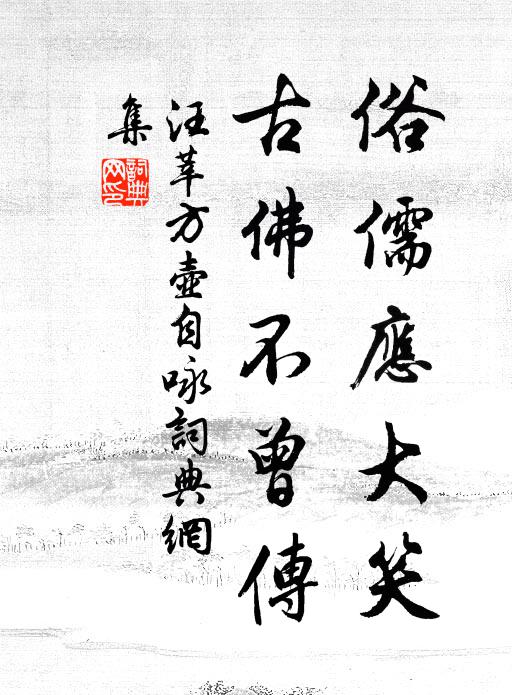 俗儒應大笑
古佛不曾傳
汪莘方壺自咏詞典網
集
詞典網印